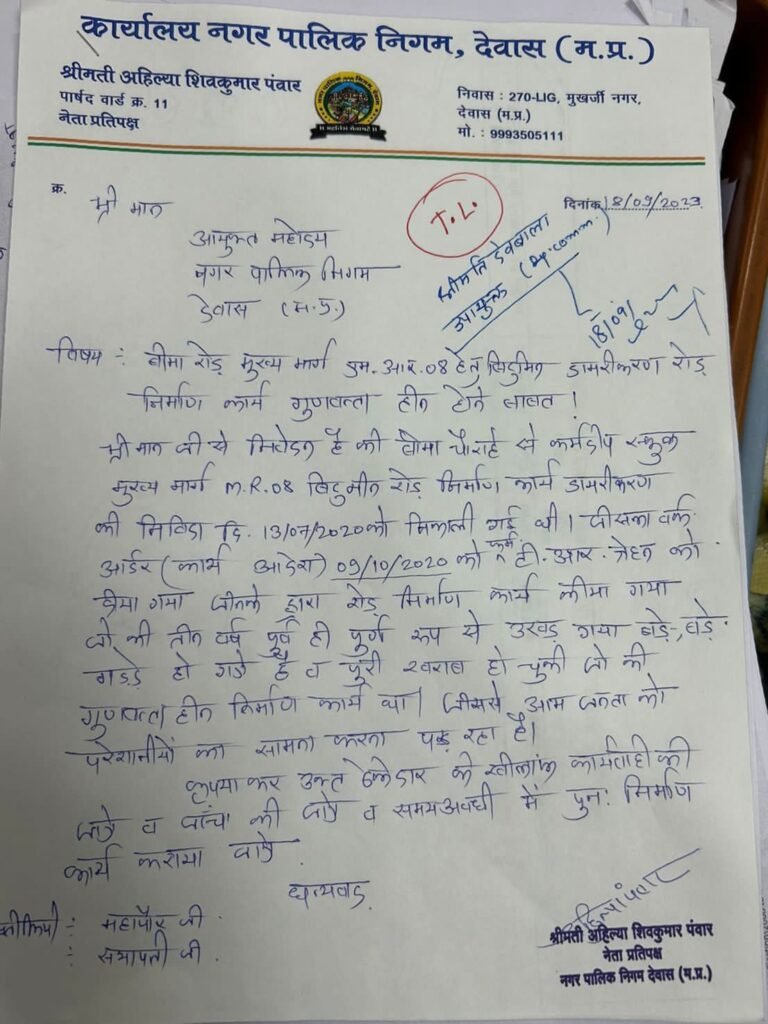 कार्यालय नगर पालिक निगम, देवास (म.प्र.)
श्रीमती अहिल्या शिवकुमार पंवार
पार्षद वार्ड क्र. 11
नेता प्रतिपक्ष
निवास : 270-LIG, मुखर्जी नगर,
देवास (म.प्र.)
मो. : 9993505111
क्र.
दिनांक 18/09/2023
श्री मान
T.L.
आयुक्त महोदय
नगर पालिक निगम
देवास (म.प्र.)
श्रीमति देवबाला
उपायुक्त (Dy. Comm.)
18/09/
विषय : बीमा रोड़ मुख्य मार्ग एम.आर.08 हेतु बिटुमिन डामरीकरण रोड़
निर्माण कार्य गुणवत्ता हीन होने बाबत!
श्री मान जी से निवेदन है की बीमा चौराहे से कर्मदीप स्कूल
मुख्य मार्ग M.R.08 बिटुमीन रोड़ निर्माण कार्य डामरीकरण
की निविदा दि. 13/07/2020 को निकाली गई थी। जीसका वर्क
आर्डर (कार्य आदेश) 09/10/2020 को फर्म टी. आर. त्रेहन को
दीया गया जीनके द्वारा रोड़ निर्माण कार्य कीया गया
जो की तीन वर्ष पूर्व ही पूर्ण रूप से उखड़ गया बड़े, बड़े
गड्ड़े हो गऐ है व पुरी खराब हो चुकी जो की
गुणवत्ता हीन निर्माण कार्य था। जीससे आम जनता को
परेशानीयों का सामना करना पड़ रहा है।
कृपया कर उक्त ठेकेदार के खीलाफ कार्यवाही की
जाऐ व जाँच की जाऐ व समय अवधी में पुनः निर्माण
कार्य कराया जाऐ
धन्यवाद
: महापौर जी.
: सभापती जी.
अहिल्या पंवार
श्रीमती अहिल्या शिवकुमार पंवार
नेता प्रतिपक्ष
नगर पालिक निगम देवास (म.प्र.)